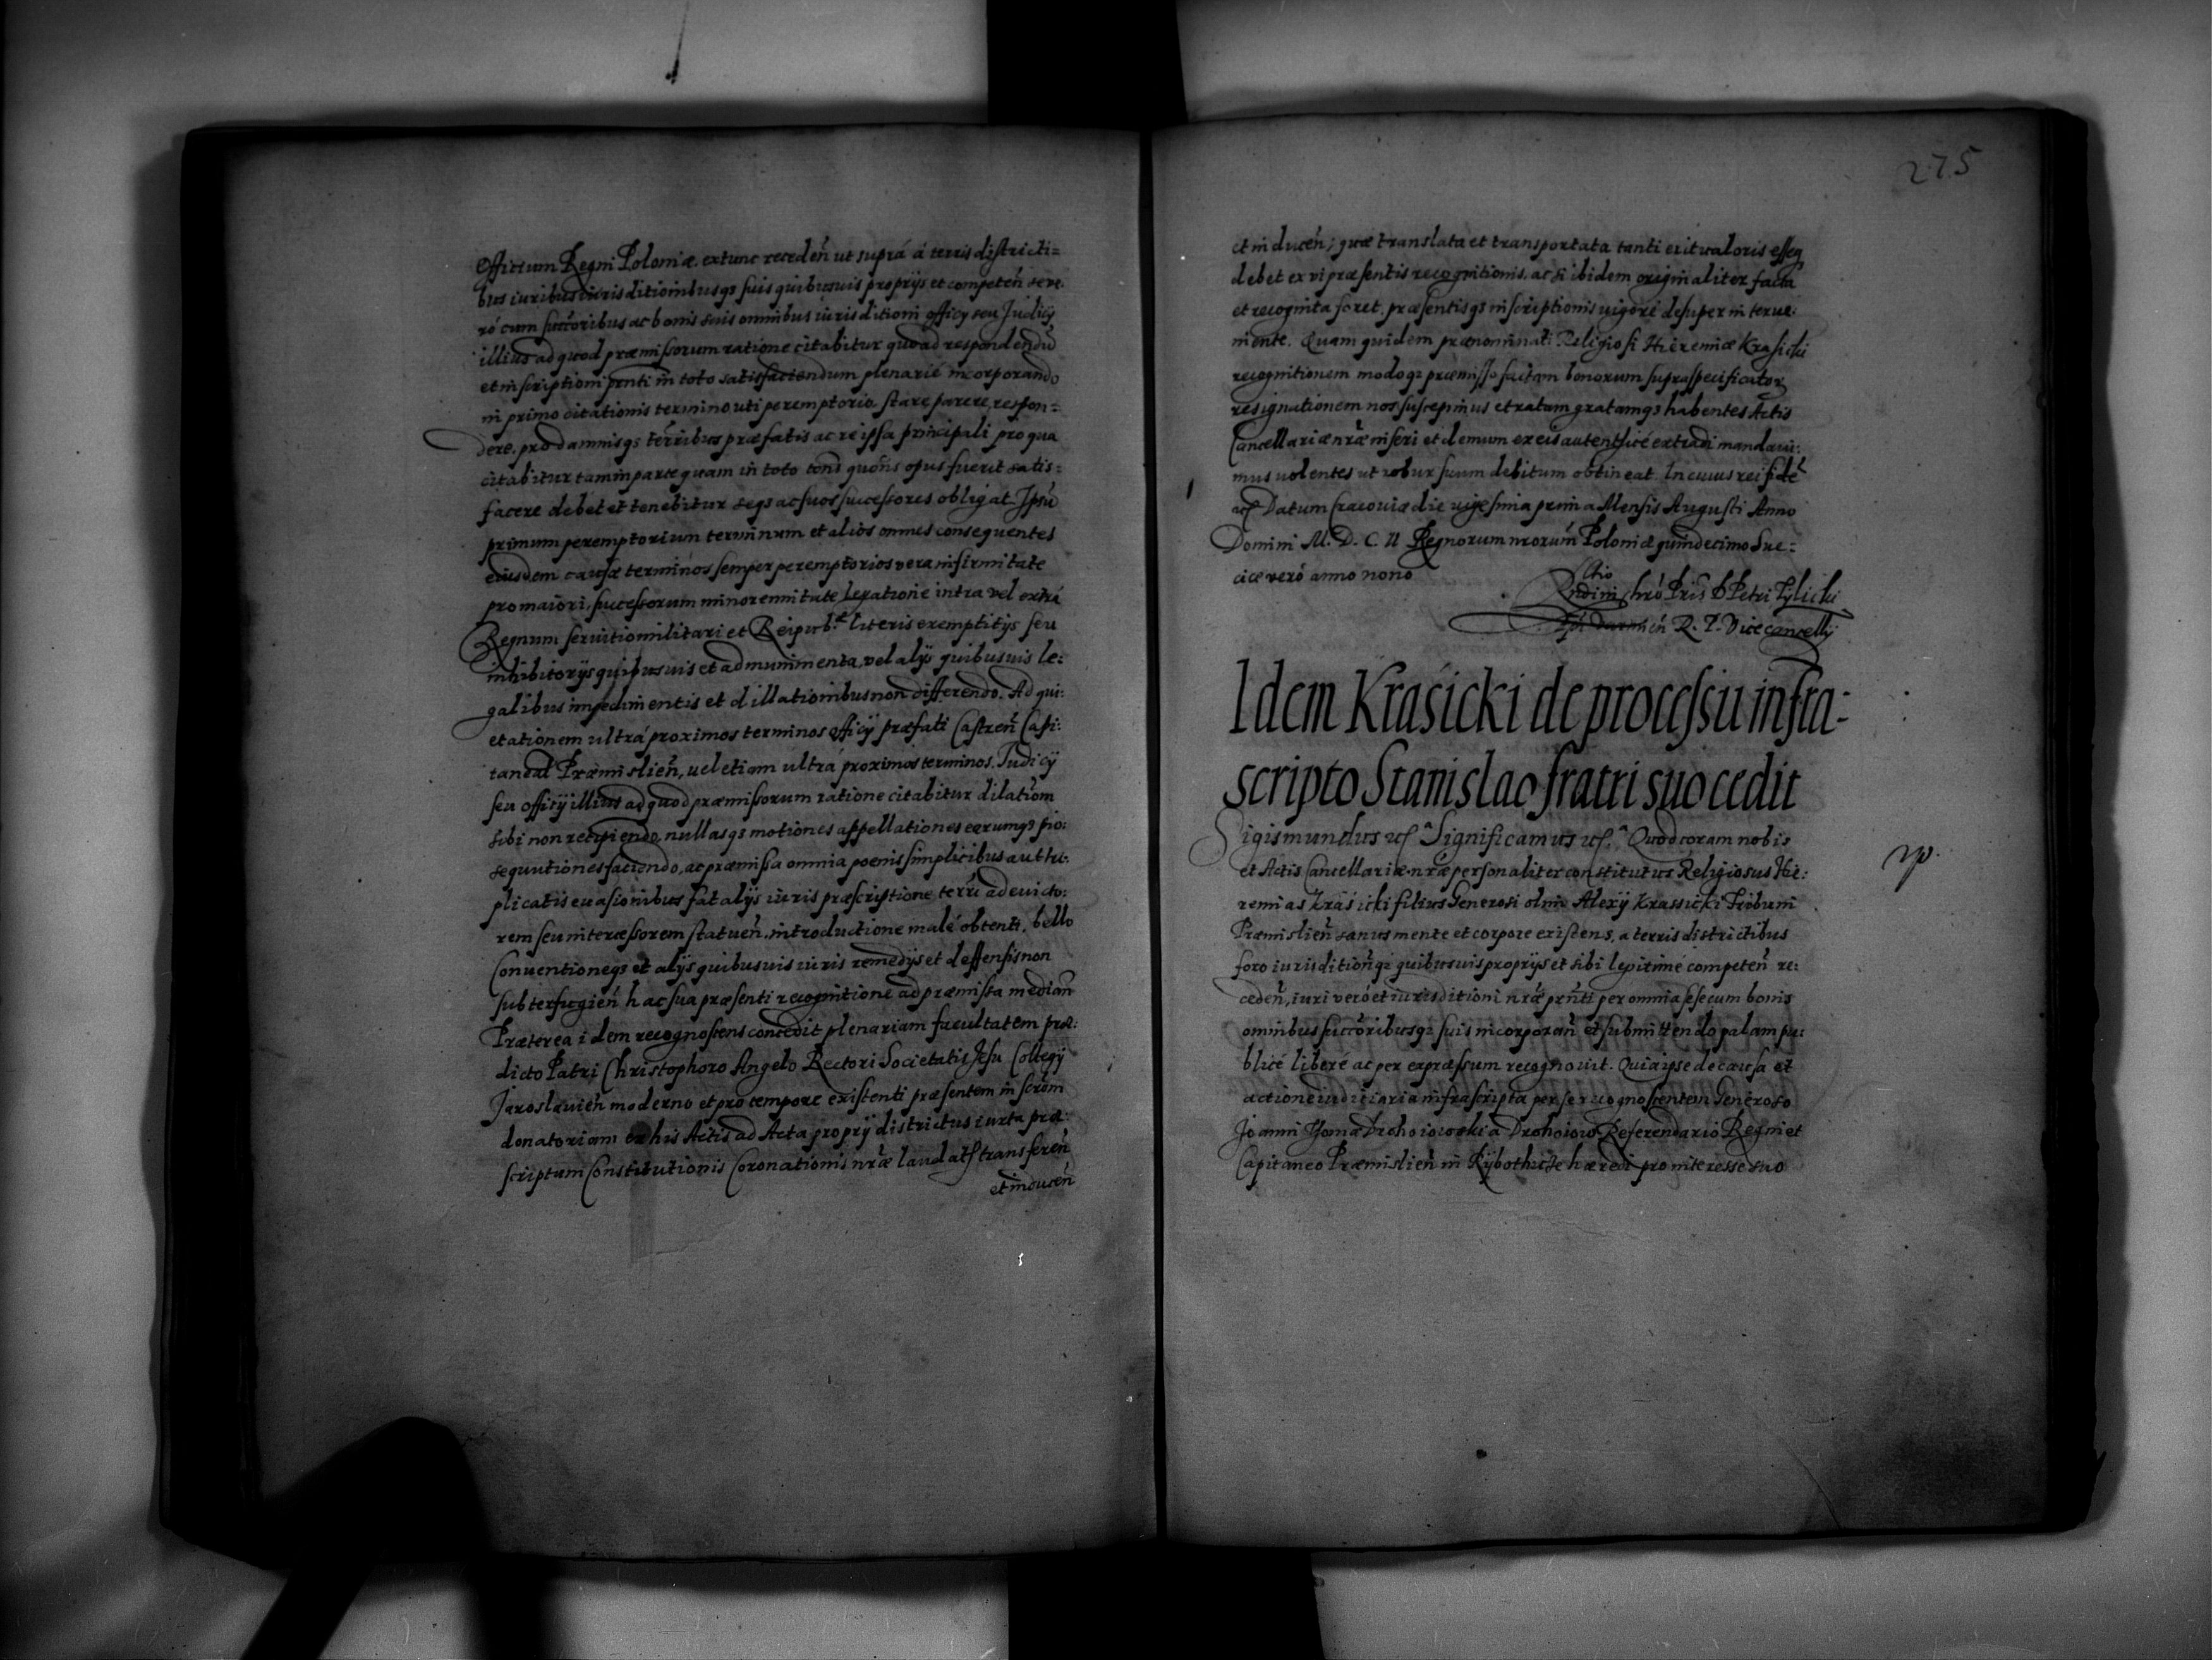 Officium Regni Poloniæ. extunc receden̄ ut suprá á terris districti=
bus iuribus iurisditionibusqȝ suis quibusuis proprijs et competen̄ sere.
ró cum succoribus ac bonis suis omnibus iurisditioni officy seu Judicy
illius ad quod præmissorum ratione citabitur quoad respondendū
et inscriptioni pn̄ti in toto satisfaciendum plenarié incorporando
in primo citationis termino, uti peremptorio. stare parere, respon=
dere. pro damnisqȝ terribus præfatis ac re ipsa principali pro qua
citabitur tam in parte quam in toto quo opus fuerit satis=
facere debet et tenebitur seqȝ ac suos successores obligat. Ipsū
primum peremptorium terminum et alios omnes consequentes
eiusdem causæ terminos semper peremptorios vera infirmitate
pro maiori, sucessorum minorennitate legatione intra vel extrá
Regnum seruitio militari et Reipub. literis exemptitijs seu
inhibitorijs quibusuis et ad munimenta, vel alijs quibusuis le:
galibus impedimentis et dillationibus non differendo. Ad qui:
etationem ultrá proximos terminos officij præfati Castren̄ Capi:
taneal Præmislien̄, uel etiam ultrá proximos terminos. Judicij
seu officij illius ad quod præmissorum ratione citabitur dilatiom
sibi non recipiendo, nullasqȝ motiones appellationes earumqȝ pro:
sequutiones faciendo, ac præmissa omnia poenis simplicibus aut tri:
plicatis euasionibus fatalijs iuris præscriptione terrū ad euicto:
rem seu intercessorem statuen̄. introductione malé obtenti, bello
Conuentioneqȝ et alijs quibusuis iuris remedijs et deffensis non
subterfugien̄ hac sua præsenti recognitione ad præmissa median̄
Præterea idem recognoscens concedit plenariam facultatem præ:
dicto Patri Christophoro Angelo Rectori Societatis Jesu Collegij
Jaroslauien̄ moderno et pro tempore existenti præsentem inscrōm
donatoriam ex his Actis ad Acta proprij districtus iuxta præ:
scriptum Constitutionis Coronationis nr̄æ laudat transferen̄
et inducen̄
275
et inducen̄; quæ translata et transportata tanti erit valoris esseqȝ
debet ex vi præsentis recognitionis. ac si ibidem originaliter facta
et recognita foret. præsentisqȝ inscriptionis uigore desuper interue:
niente. Quam quidem prænominati Religiosi Hieremiæ Krasicki
recognitionem modoqȝ præmisso factam bonorum supraspecificator
resignationem nos suscepimus et ratam gratamqȝ habentes Actis
Cancellariæ nr̄æ inseri et demum ex eis autenthicé extradi mandaui:
mus uolentes ut robur suum debitum obtineat. In cuius rei fidē
Datum Cracoviæ die vigesima prima Mensis Augusti Anno
Domini M. D. C. II Regnorum nrorum Poloniæ quindecimo Sue=
ciæ veró anno nono
Petri Tylicki
R. P. Vicecancellij
Idem Krasicki de processu infra-
scripto Stanislao fratri suo cedit
Sigismundus Significamus Quod coram nobis
et Actis Cancellariæ nr̄æ personaliter constitutus Religiosus Hie:
remias Krasicki filius Generosi olim Alexij Krassicki Tribuni
Præmislien̄ sanus mente et corpore existens, a terris districtibus
foro iurisditionqȝ quibusuis proprijs et sibi legitimé competen̄ re:
ceden̄, iuri veró et iurisditioni nr̄æ prn̄ti per omnia se se cum bonis
omnibus succoribusqȝ suis incorporan̄ et submittendo palam pu:
blicé liberé ac per expræssum recognouit. Quia ipse de causa et
actione iuditiaria infrascripta per se recognoscentem Generoso
Joanni Thoma Drohoiowski a Drohoiow Referendario Regni et
Capitaneo Præmislien̄ in Rÿbothicze hæredi pro interesse suo